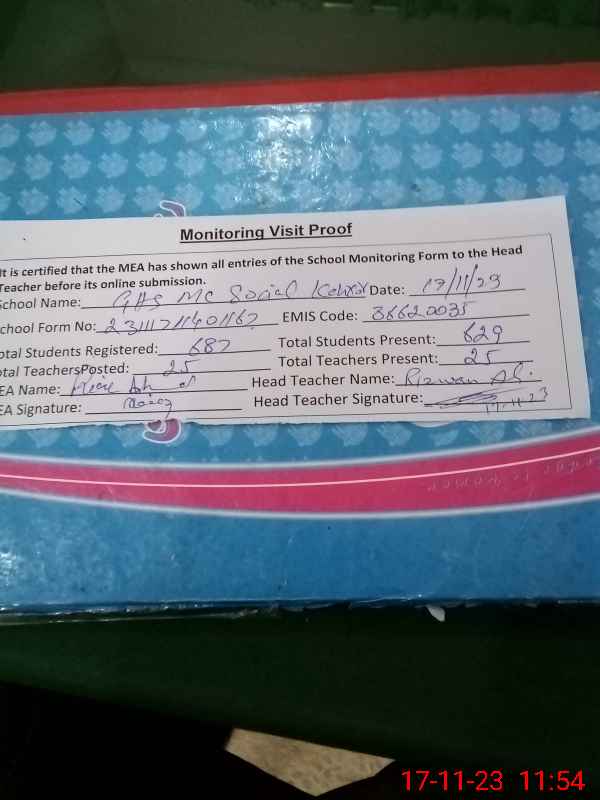 Monitoring Visit Proof
It is certified that the MEA has shown all entries of the School Monitoring Form to the Head
Teacher before its online submission.
School Name: GHS MC Social Date: 17/11/23
chool Form No: EMIS Code: 36620035
otal Students Registered: 687 Total Students Present: 629
otal TeachersPosted: 25 Total Teachers Present: 25
EA Name: Head Teacher Name: Rizwan Ali
EA Signature: Head Teacher Signature: 17.11.23
17-11-23 11:54